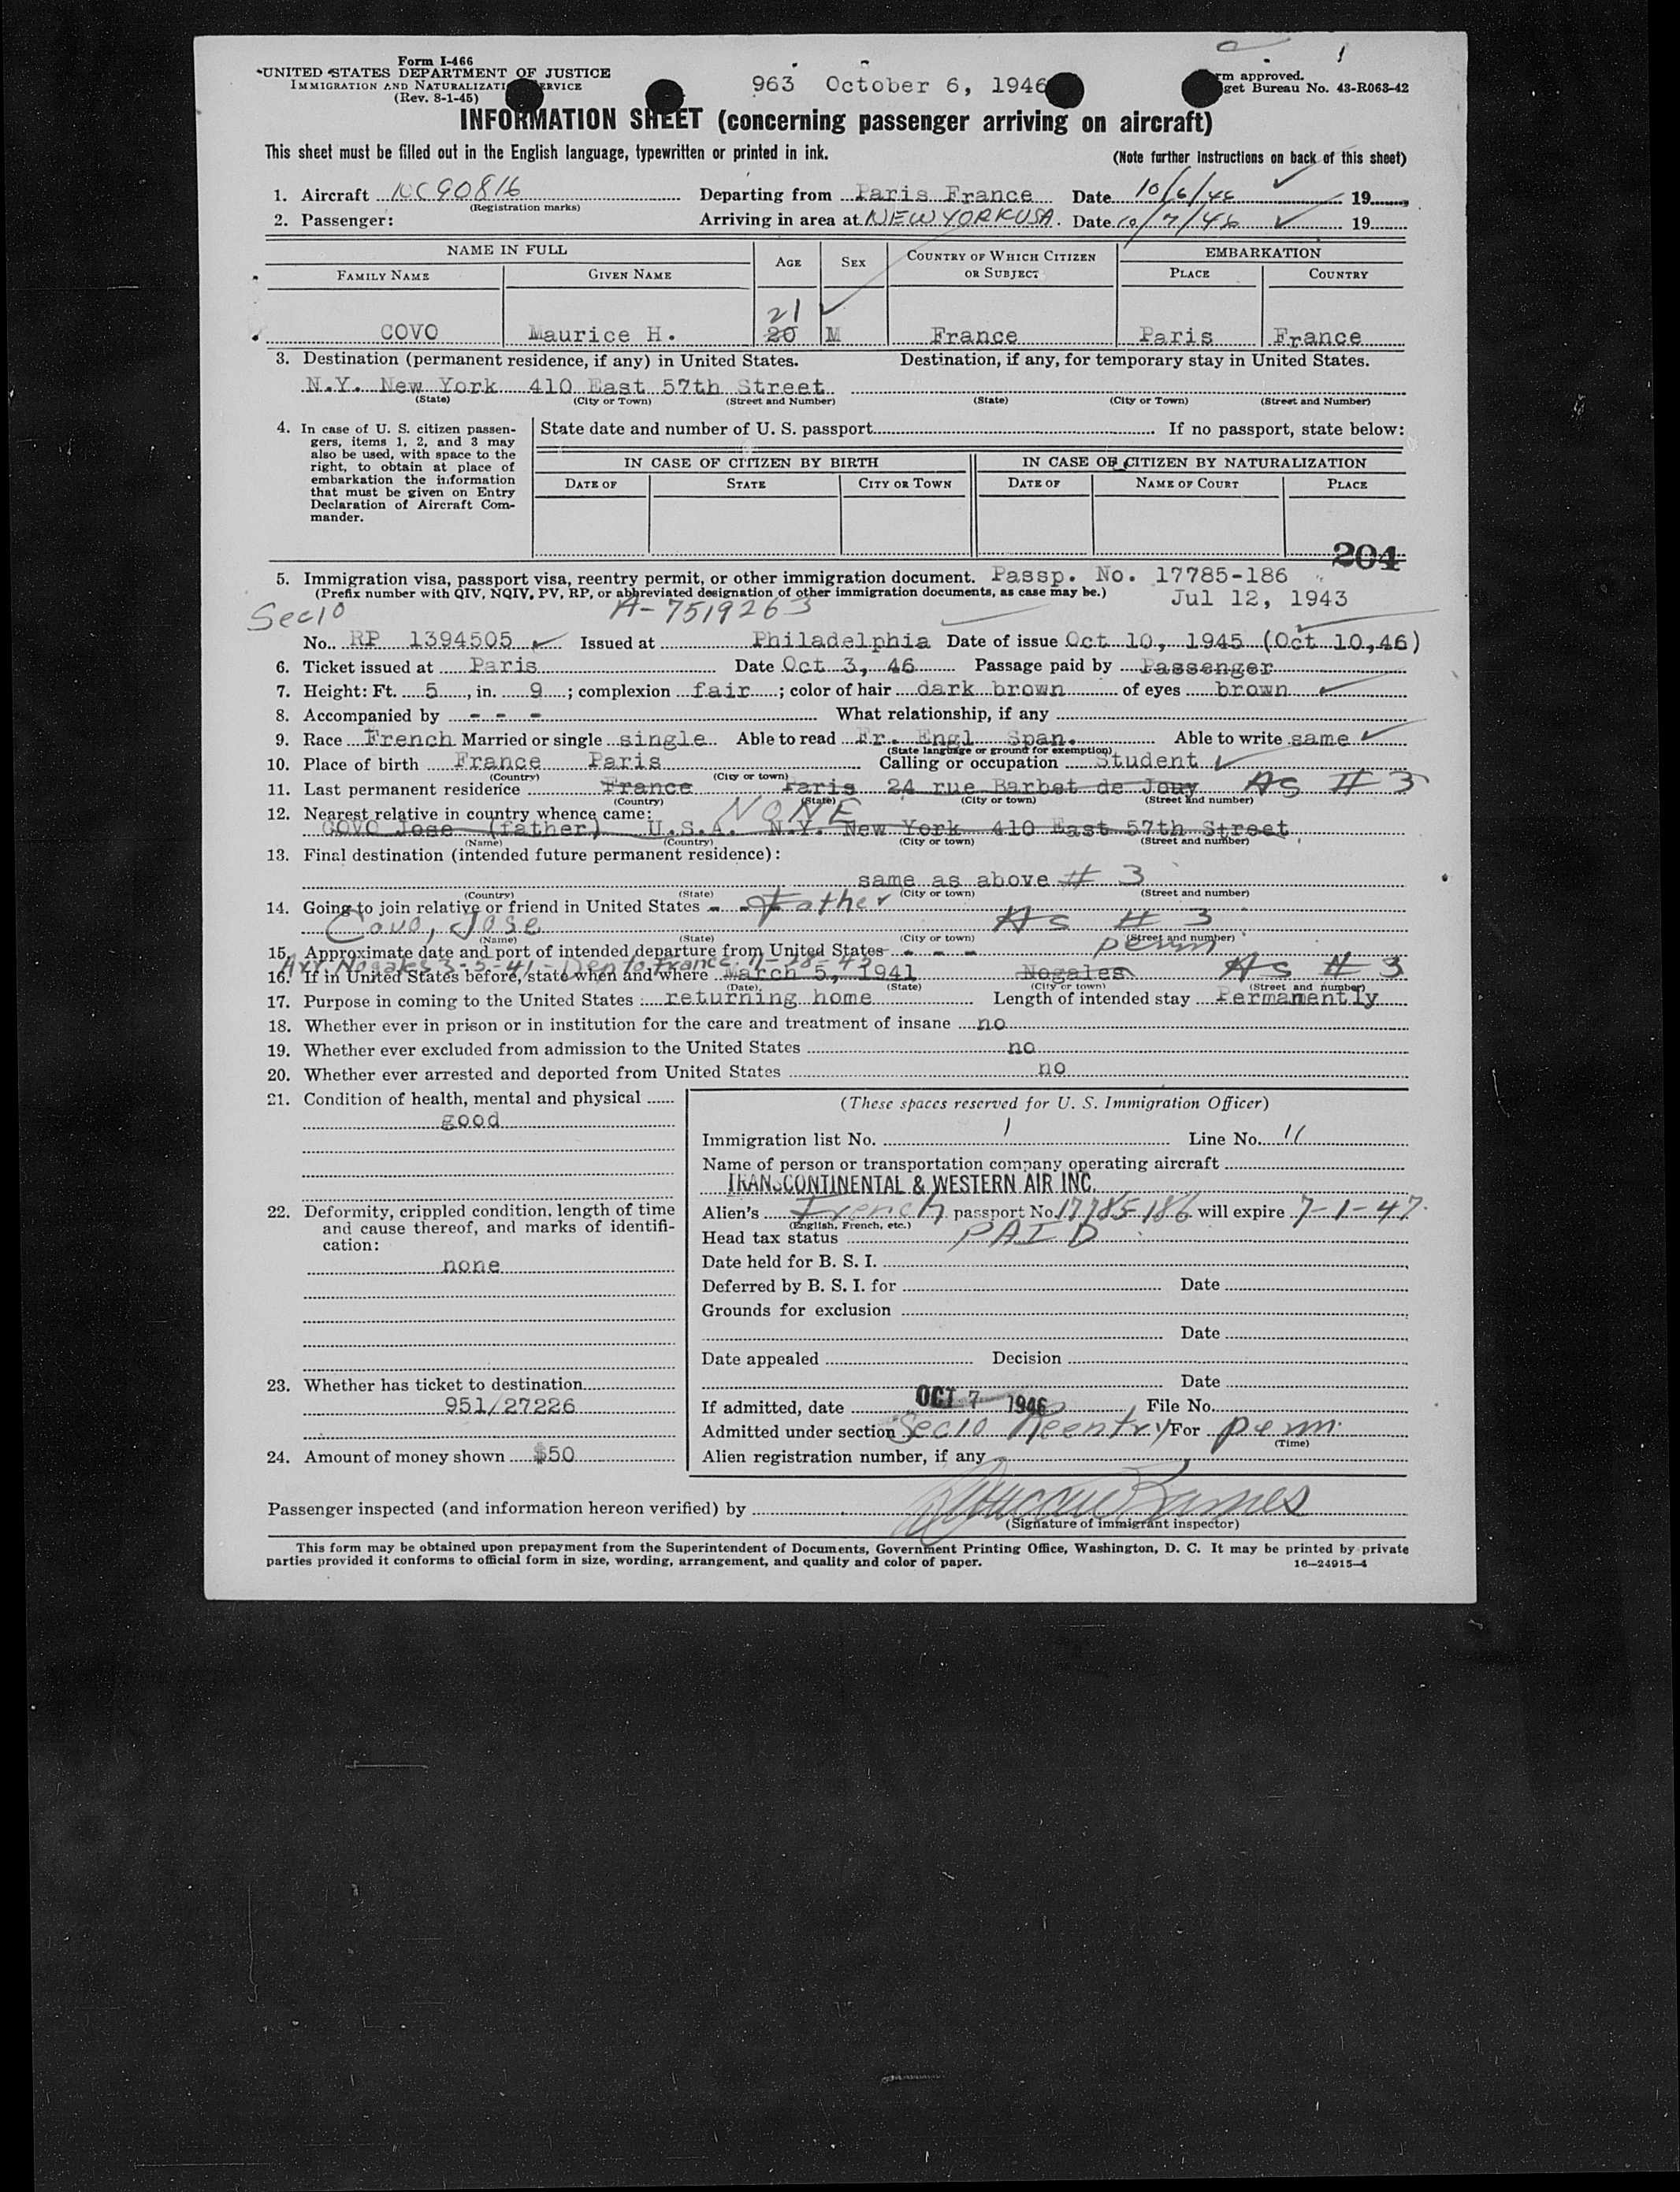 Form I-466
UNITED STATES DEPARTMENT OF JUSTICE
IMMIGRATION AND NATURALIZATI ERVICE
(Rev. 8-1-45)
963 October 6, 1946
rm approved.
get Bureau No. 43-R063-42
INFORMATION SHEET (concerning passenger arriving on aircraft)
This sheet must be filled out in the English language, typewritten or printed in ink.
(Note further instructions on back of this sheet)
1. Aircraft NC90816 Departing from Paris France Date 10/6/46 19
(Registration marks)
2. Passenger: Arriving in area at NEW YORK USA. Date 10/7/46 19
NAME IN FULL AGE SEX COUNTRY OF WHICH CITIZEN OR SUBJECT EMBARKATION
FAMILY NAME GIVEN NAME PLACE COUNTRY
21
COVO Maurice H. 20 M France Paris France
3. Destination (permanent residence, if any) in United States. Destination, if any, for temporary stay in United States.
N.Y. New York 410 East 57th Street
(State) (City or Town) (Street and Number) (State) (City or Town) (Street and Number)
4. In case of U. S. citizen passengers, items 1, 2, and 3 may also be used, with space to the right, to obtain at place of embarkation the information that must be given on Entry Declaration of Aircraft Commander.
State date and number of U. S. passport If no passport, state below:
IN CASE OF CITIZEN BY BIRTH IN CASE OF CITIZEN BY NATURALIZATION
DATE OF STATE CITY OR TOWN DATE OF NAME OF COURT PLACE
204
5. Immigration visa, passport visa, reentry permit, or other immigration document. Passp. No. 17785-186
(Prefix number with QIV, NQIV, PV, RP, or abbreviated designation of other immigration documents, as case may be.) Jul 12, 1943
Sec10 A-7519263
No. RP 1394505 Issued at Philadelphia Date of issue Oct 10, 1945 (Oct 10,46)
6. Ticket issued at Paris Date Oct 3, 46 Passage paid by Passenger
7. Height: Ft. 5, in. 9; complexion fair; color of hair dark brown of eyes brown
8. Accompanied by - - - What relationship, if any
9. Race French Married or single single Able to read Fr. Engl Span. Able to write same
(State language or ground for exemption)
10. Place of birth France Paris Calling or occupation Student
(Country) (City or town)
11. Last permanent residence France Paris 24 rue Barbet de Jouy As # 3
(Country) (State) (City or town) (Street and number)
12. Nearest relative in country whence came: NONE
COVO Jose (father) U.S.A. N.Y. New York 410 East 57th Street
(Name) (Country) (City or town) (Street and number)
13. Final destination (intended future permanent residence):
same as above # 3
(Country) (State) (City or town) (Street and number)
14. Going to join relative or friend in United States - - Father
Covo, Jose As # 3
(Name) (State) (City or town) (Street and number)
15. Approximate date and port of intended departure from United States - - - perm
Arr Nogales 3-5-41 - Dep to France
16. If in United States before, state when and where March 5, 1941 Nogales As # 3
(Date) (State) (City or town) (Street and number)
17. Purpose in coming to the United States: returning home Length of intended stay Permamently
18. Whether ever in prison or in institution for the care and treatment of insane no
19. Whether ever excluded from admission to the United States no
20. Whether ever arrested and deported from United States no
21. Condition of health, mental and physical
good
22. Deformity, crippled condition, length of time and cause thereof, and marks of identification:
none
23. Whether has ticket to destination
951/27226
24. Amount of money shown $50
(These spaces reserved for U. S. Immigration Officer)
Immigration list No. 1 Line No. 11
Name of person or transportation company operating aircraft
TRANSCONTINENTAL & WESTERN AIR INC.
Alien's French passport No. 17785-186 will expire 7-1-47
(English, French, etc.)
Head tax status PAID
Date held for B. S. I.
Deferred by B. S. I. for Date
Grounds for exclusion
Date
Date appealed Decision
Date
If admitted, date OCT 7 1946 File No.
Admitted under section Sec10 Reentry For perm
(Time)
Alien registration number, if any
Passenger inspected (and information hereon verified) by
(Signature of immigrant inspector)
This form may be obtained upon prepayment from the Superintendent of Documents, Government Printing Office, Washington, D. C. It may be printed by private
parties provided it conforms to official form in size, wording, arrangement, and quality and color of paper. 16—24915-4